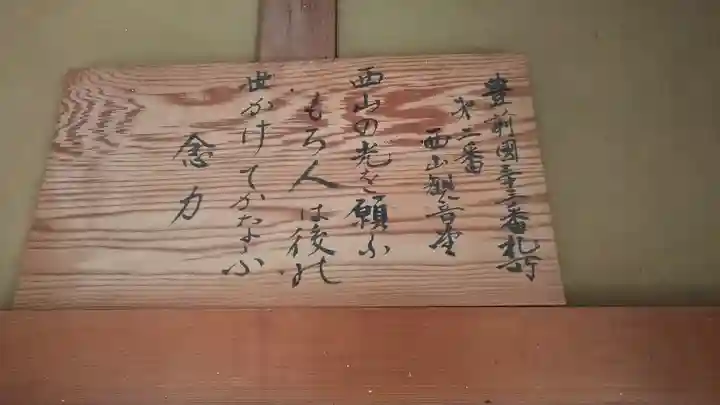 豊前國三十三番札所
第二番
西山観音堂
西山の光を願ふ
もろ人は後の
世かけてかなふ
念力